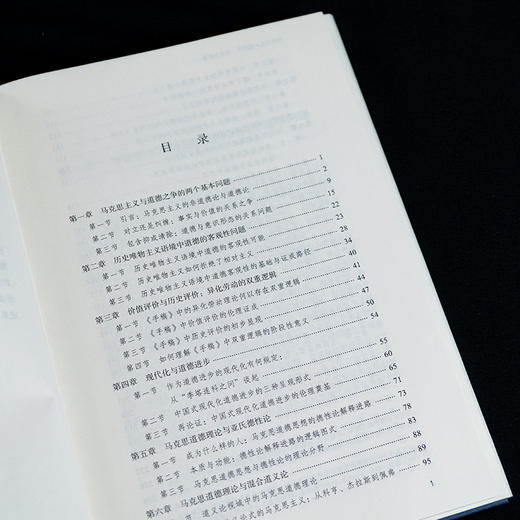 目 录
第一章 马克思主义与道德之争的两个基本问题 1
第一节 引言：马克思主义的非道德论与道德论 2
第二节 对立还是纠缠：事实与价值的关系之争 9
第三节 包含抑或清除：道德与意识形态的关系问题 15
第二章 历史唯物主义语境中道德的客观性问题 22
第一节 历史唯物主义语境中道德的客观性可能 23
第二节 历史唯物主义如何拒绝了相对主义 28
第三节 历史唯物主义语境中道德客观性的基础与证成路径 34
第三章 价值评价与历史评价：异化劳动的双重逻辑 40
第一节 《手稿》中的异化劳动理论何以存在双重逻辑 41
第二节 《手稿》中价值评价的伦理证成 44
第三节 《手稿》中历史评价的初步显现 47
第四节 如何理解《手稿》中双重逻辑的阶段性意义 50
第四章 现代化与道德进步 54
第一节 作为道德进步的现代化有何规定：
从“李塔连科之问”谈起 55
第二节 中国式现代化道德进步的三种呈现形式 60
第三节 再论证：中国式现代化道德进步的伦理奠基 65
第五章 马克思道德理论与亚氏德性论 71
第一节 成为什么样的人：马克思道德思想的德性论解释进路 73
第二节 本质与功能：德性论解释进路的逻辑图式 78
第三节 马克思道德思想与德性论的理论分野 83
第六章 马克思道德理论与混合道义论 88
第一节 道义论视域中的马克思道德理论 89
论式的马克思主义：从科亨、杰拉斯到佩弗 95
1